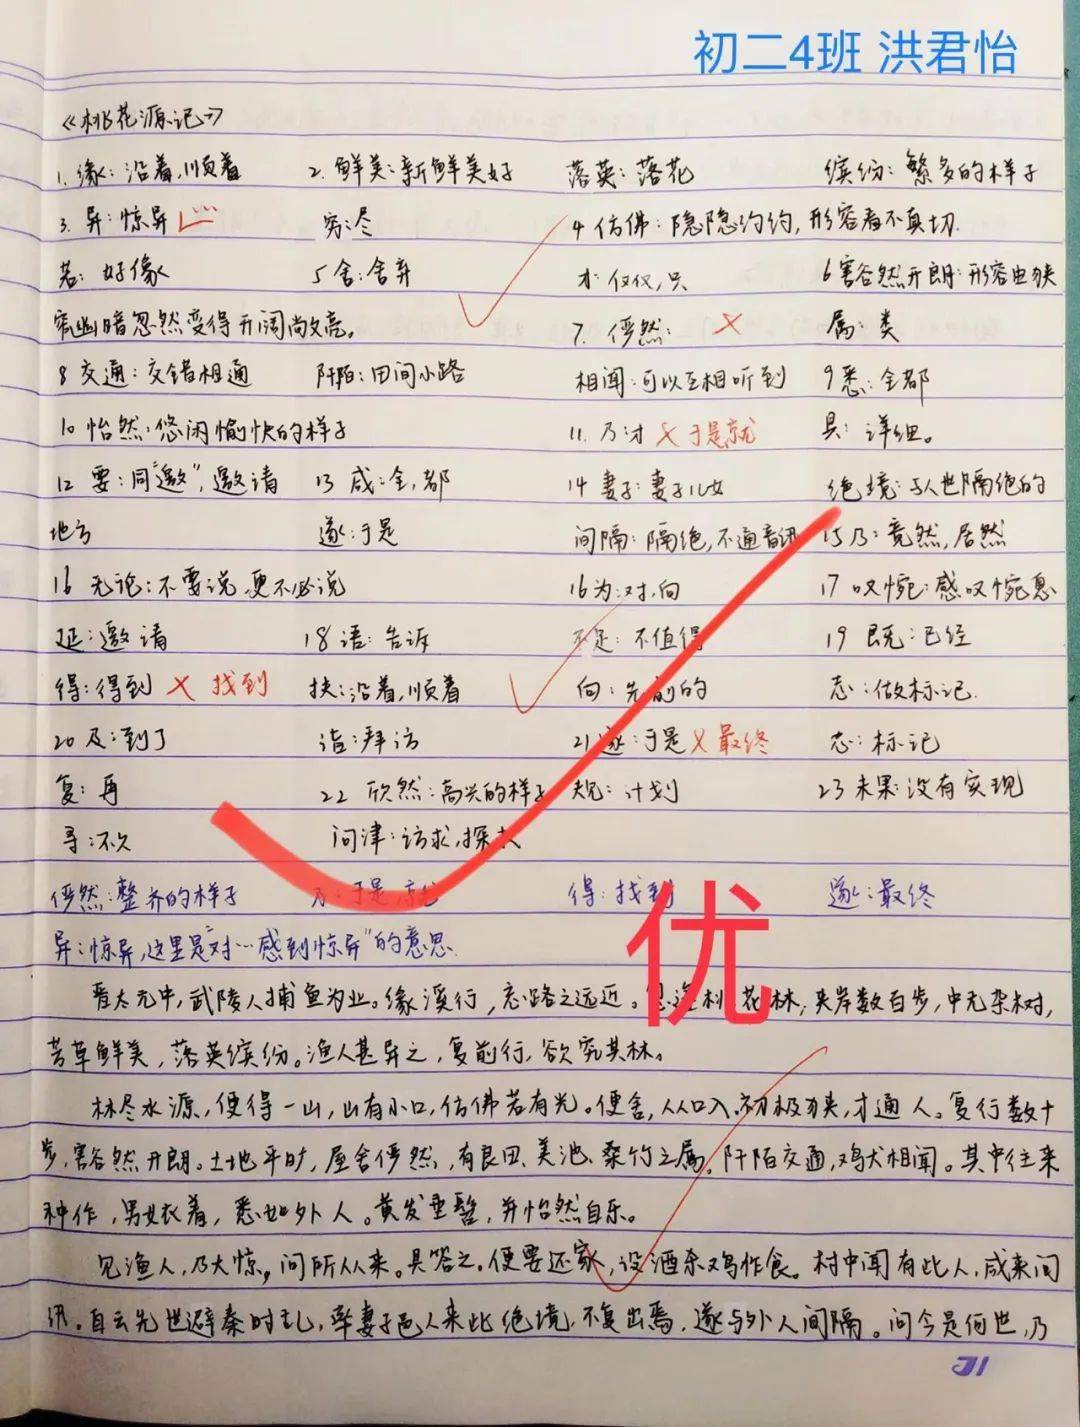 初二4班 洪君怡
《桃花源记》
1. 缘：沿着，顺着 2. 鲜美：新鲜美好 落英：落花 缤纷：繁多的样子
3. 异：惊异 穷：尽 4 仿佛：隐隐约约，形容看不真切.
若：好像 5 舍：舍弃 才：仅仅，只 6 豁然开朗：形容由狭
窄幽暗忽然变得开阔敞亮。 7. 俨然： × 属：类
8 交通：交错相通 阡陌：田间小路 相闻：可以互相听到 9 悉：全都
10 怡然：悠闲愉快的样子 11. 乃：才 × 于是就 具：详细。
12 要：同“邀”，邀请 13 咸：全，都 14 妻子：妻子儿女 绝境：与人世隔绝的
地方 遂：于是 间隔：隔绝，不通音讯 15 乃：竟然，居然
16 无论：不要说，更不必说 16 为：对，向 17 叹惋：感叹惋惜
延：邀请 18 语：告诉 不足：不值得 19 既：已经
得：得到 × 找到 扶：沿着，顺着 向：先前的 志：做标记.
20 及：到了 诣：拜访 21 遂：于是 × 最终 志：标记
复：再 22 欣然：高兴的样子 规：计划 23 未果：没有实现
寻：不久 问津：访求，探求
俨然：整齐的样子 乃：于是就 得：找到 遂：最终
异：惊异，这里是“对…感到惊异”的意思.
晋太元中，武陵人捕鱼为业。缘溪行，忘路之远近。忽逢桃花林，夹岸数百步，中无杂树，
芳草鲜美，落英缤纷。渔人甚异之，复前行，欲穷其林。
林尽水源，便得一山，山有小口，仿佛若有光。便舍，从口入。初极狭，才通人。复行数十
步，豁然开朗。土地平旷，屋舍俨然，有良田、美池、桑竹之属。阡陌交通，鸡犬相闻。其中往来
种作，男女衣着，悉如外人。黄发垂髫，并怡然自乐。
见渔人，乃大惊，问所从来。具答之。便要还家，设酒杀鸡作食。村中闻有此人，咸来问
讯。自云先世避秦时乱，率妻子邑人来此绝境，不复出焉，遂与外人间隔。问今是何世，乃
优